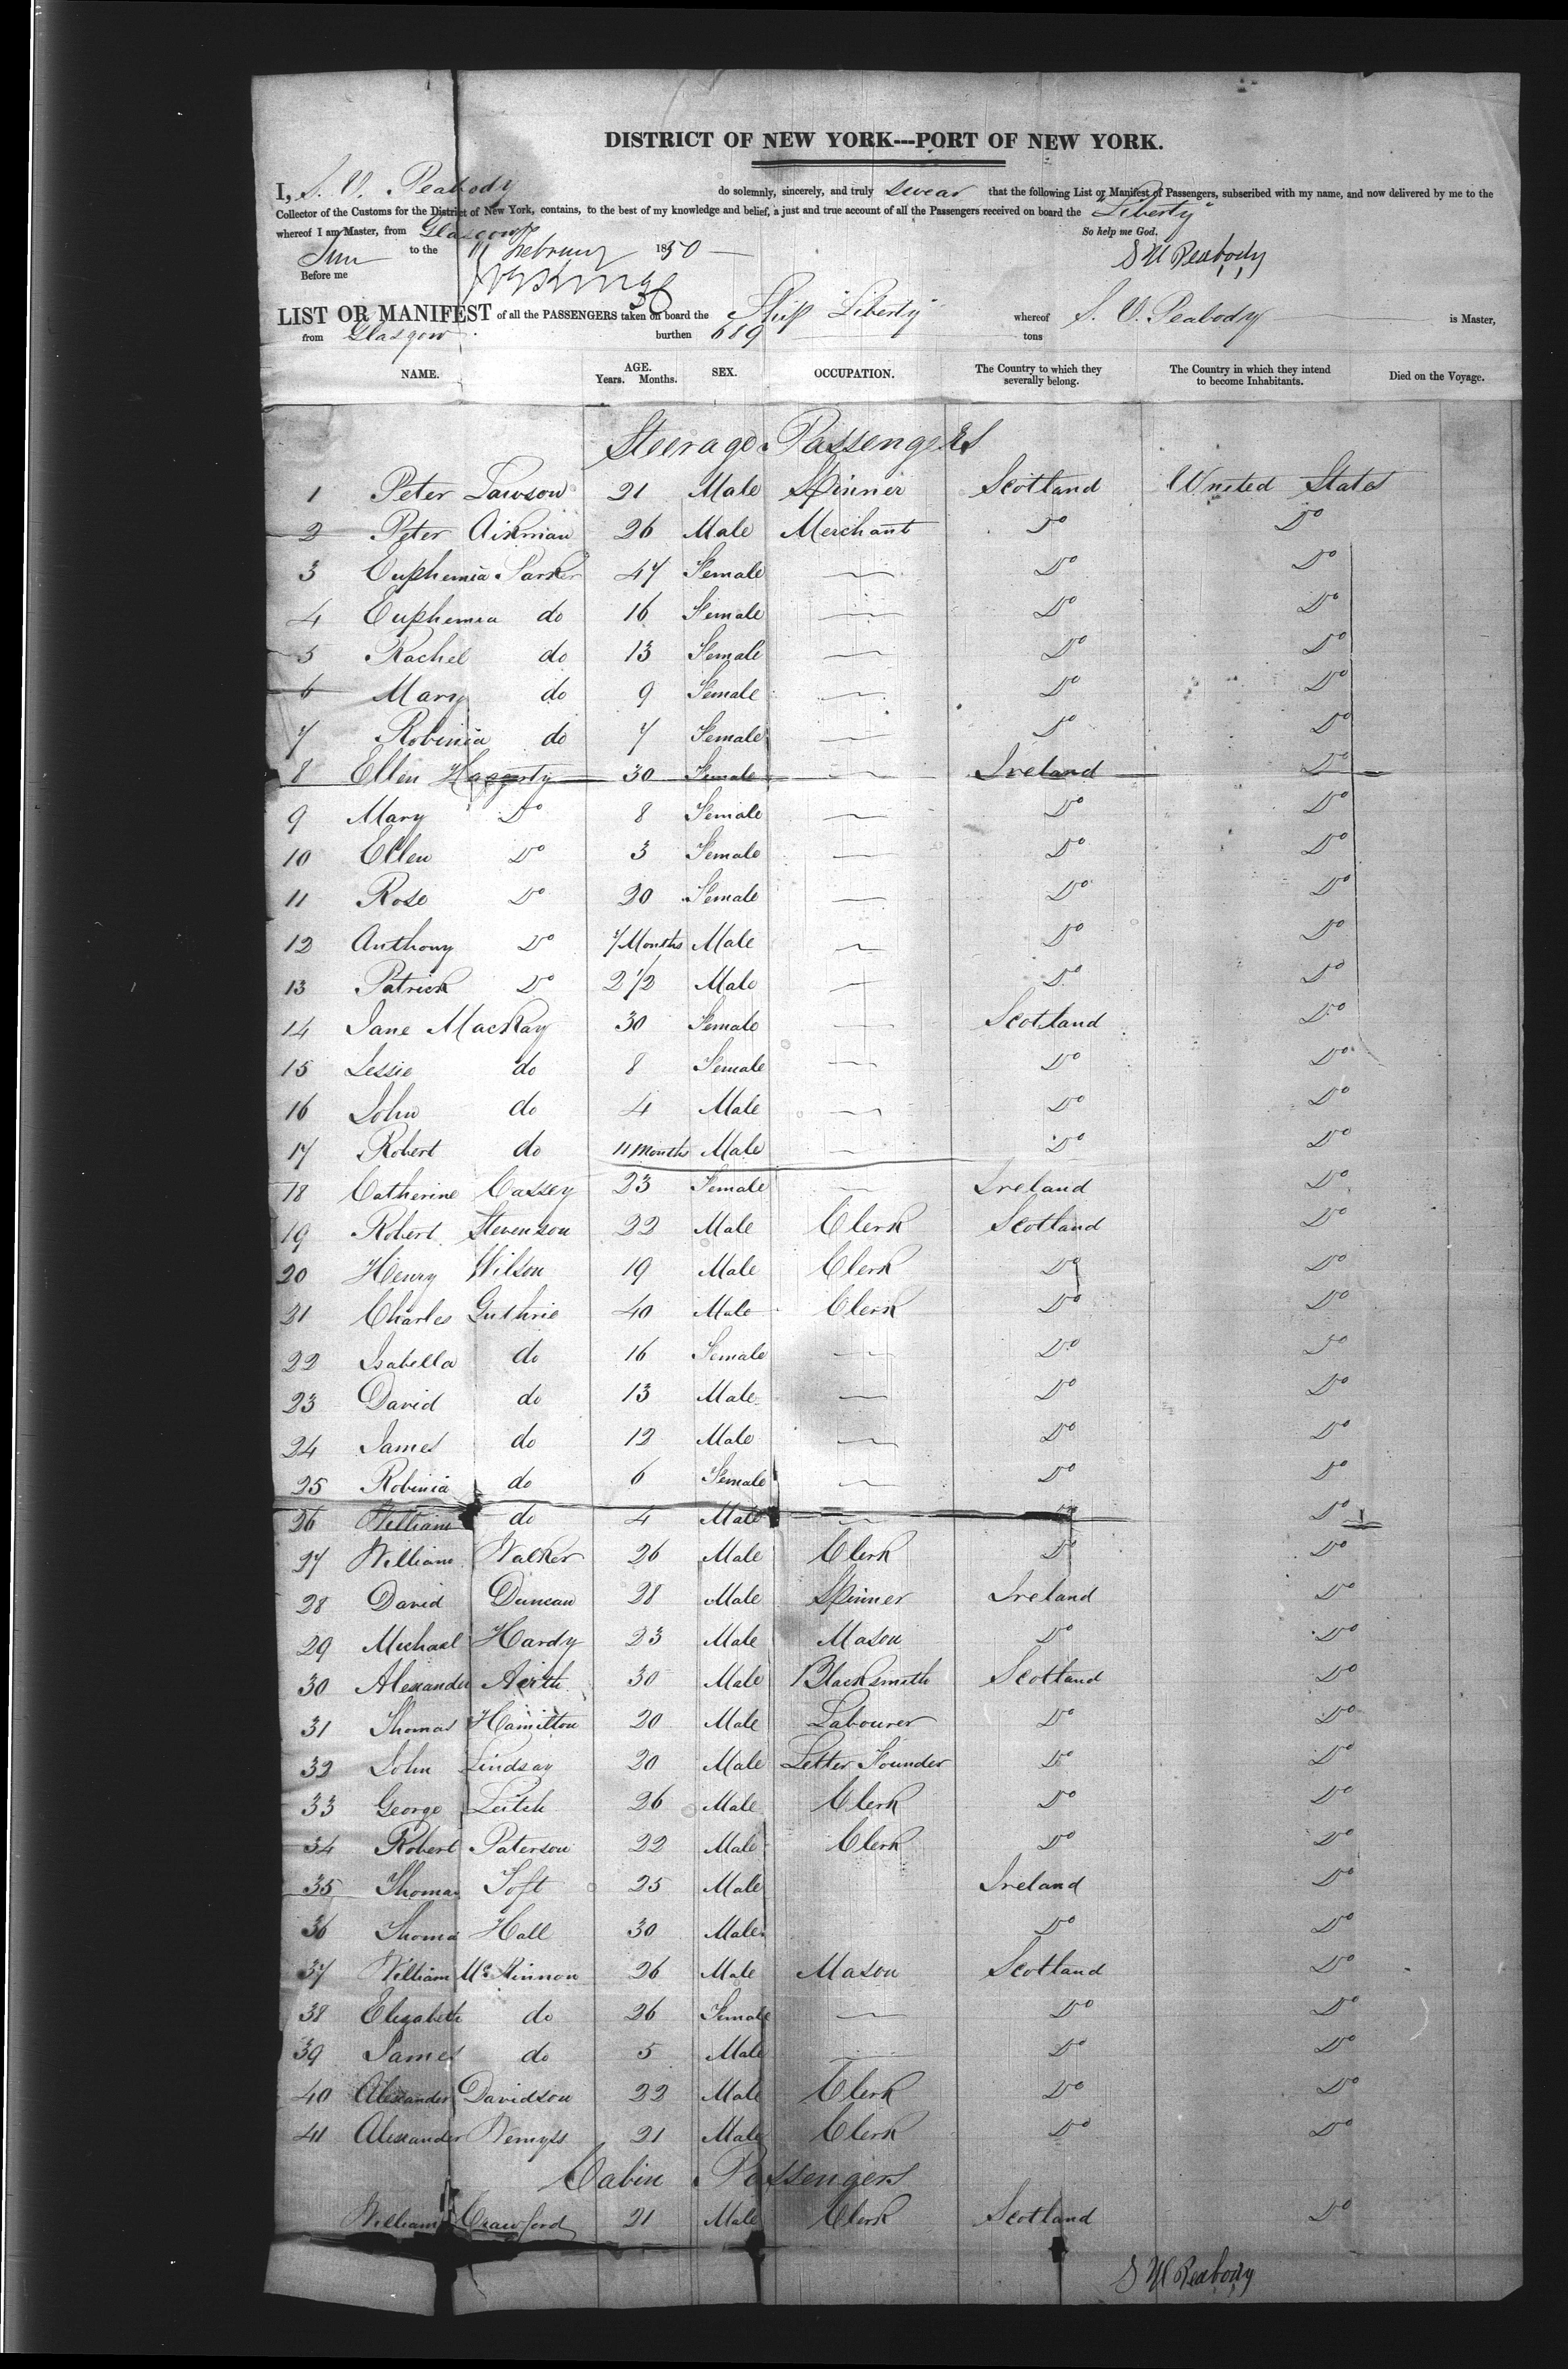 DISTRICT OF NEW YORK---PORT OF NEW YORK.
I, S. V. Peabody do solemnly, sincerely, and truly swear that the following List or Manifest of Passengers, subscribed with my name, and now delivered by me to the
Collector of the Customs for the District of New York, contains, to the best of my knowledge and belief, a just and true account of all the Passengers received on board the "Liberty"
whereof I am Master, from Glasgow So help me God.
to the 11 February 1850 S V Peabody
Before me
LIST OR MANIFEST of all the PASSENGERS taken on board the Ship "Liberty" whereof S. V. Peabody is Master,
from Glasgow burthen 689 tons
NAME. AGE. Years. Months. SEX. OCCUPATION. The Country to which they severally belong. The Country in which they intend to become Inhabitants. Died on the Voyage.
Steerage Passengers
1 Peter Lawson 21 Male Spinner Scotland United States
2 Peter Aikman 26 Male Merchant Do Do
3 Euphemia Parker 47 Female — Do Do
4 Euphemia do 16 Female — Do Do
5 Rachel do 13 Female — Do Do
6 Mary do 9 Female — Do Do
7 Robinia do 7 Female — Do Do
8 Ellen Hagerty 30 Female — Ireland Do
9 Mary Do 8 Female — Do Do
10 Ellen Do 3 Female — Do Do
11 Rose Do 20 Female — Do Do
12 Anthony Do 7 Months Male — Do Do
13 Patrick Do 2 1/2 Male — Do Do
14 Jane MacKay 30 Female — Scotland Do
15 Jessie do 8 Female — Do Do
16 John do 4 Male — Do Do
17 Robert do 11 Months Male — Do Do
18 Catherine Cassey 23 Female — Ireland Do
19 Robert Stevenson 22 Male Clerk Scotland Do
20 Henry Wilson 19 Male Clerk Do Do
21 Charles Guthrie 40 Male Clerk Do Do
22 Isabella do 16 Female — Do Do
23 David do 13 Male — Do Do
24 James do 12 Male — Do Do
25 Robinia do 6 Female — Do Do
26 William do 4 Male — Do Do
27 William Walker 26 Male Clerk Do Do
28 David Duncan 28 Male Spinner Ireland Do
29 Michael Hardy 23 Male Mason Do Do
30 Alexander Airth 30 Male Blacksmith Scotland Do
31 Thomas Hamilton 20 Male Labourer Do Do
32 John Lindsay 20 Male Letter Founder Do Do
33 George Leitch 26 Male Clerk Do Do
34 Robert Paterson 22 Male Clerk Do Do
35 Thomas Toft 25 Male Ireland Do
36 Thomas Hall 30 Male Do Do
37 William McKinnon 26 Male Mason Scotland Do
38 Elizabeth do 26 Female — Do Do
39 James do 5 Male — Do Do
40 Alexander Davidson 22 Male Clerk Do Do
41 Alexander Wemyss 21 Male Clerk Do Do
Cabin Passengers
William Crawford 21 Male Clerk Scotland Do
S V Peabody